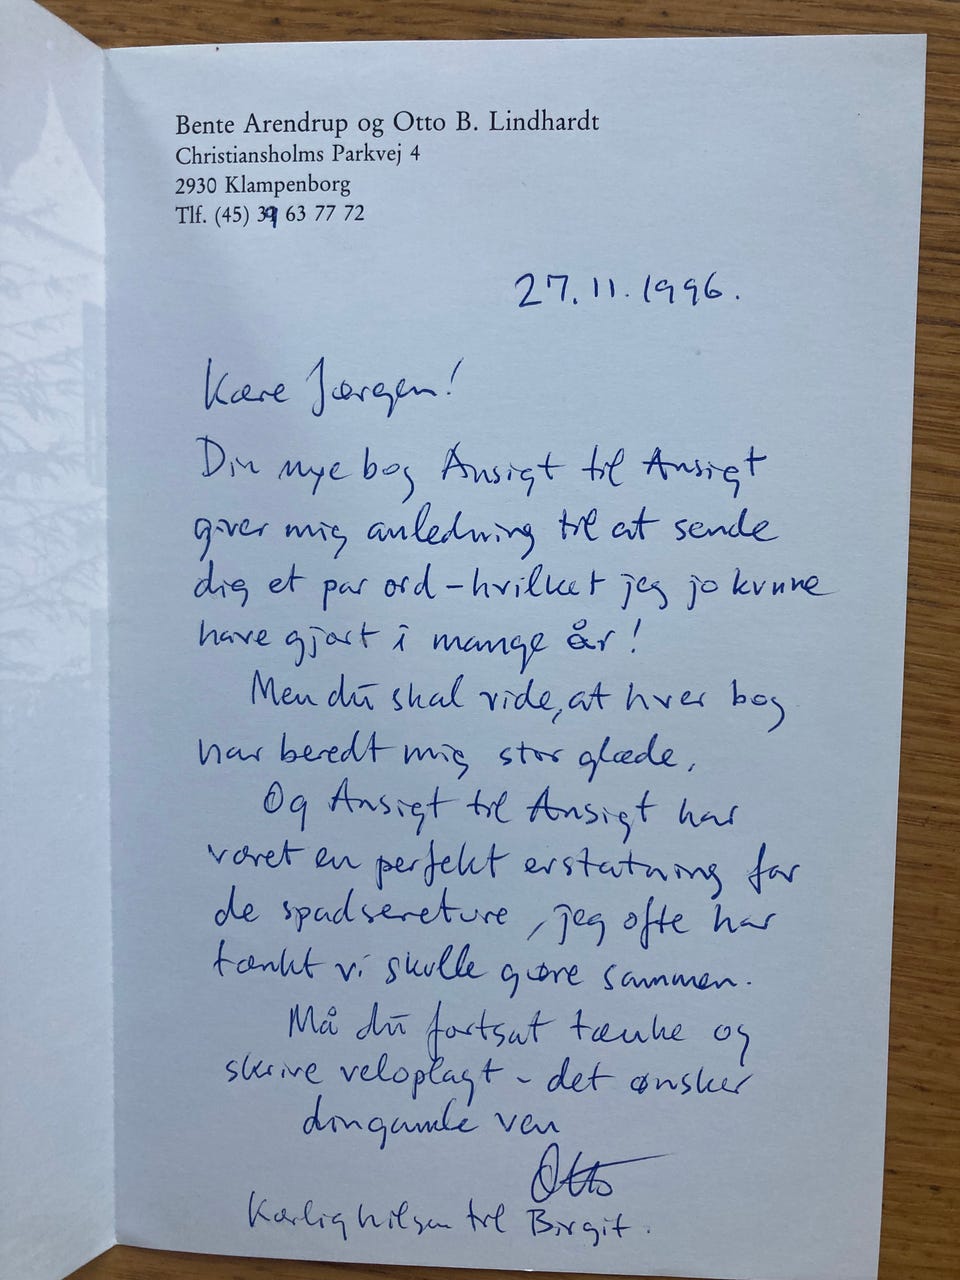 Bente Arendrup og Otto B. Lindhardt
Christiansholms Parkvej 4
2930 Klampenborg
Tlf. (45) 39 63 77 72
27.11.1996.
Kære Jørgen!
Din nye bog Ansigt til Ansigt
giver mig anledning til at sende
dig et par ord – hvilket jeg jo kunne
have gjort i mange år!
Men du skal vide, at hver bog
har beredt mig stor glæde.
Og Ansigt til Ansigt har
været en perfekt erstatning for
de spadsereture, jeg ofte har
tænkt vi skulle gøre sammen.
Må du fortsat tænke og
skrive veloplagt – det ønsker
din gamle ven
Otto
Kærlig hilsen til Birgit.